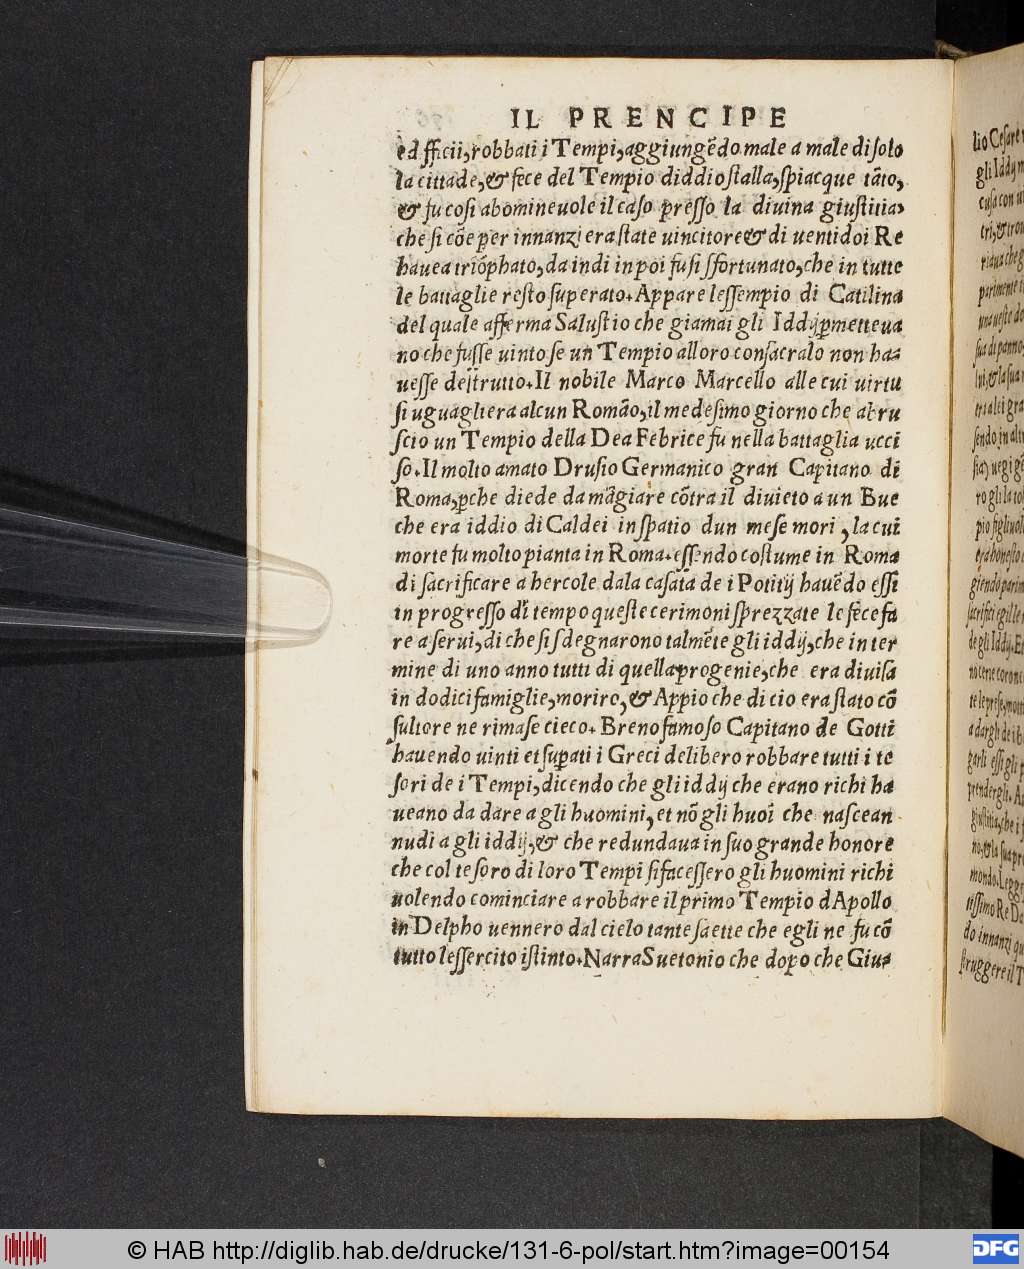 IL PRENCIPE
edifficii, robbati i Tempi, aggiungẽdo male a male disolo
la cittade, & fece del Tempio diddio stalla, spiacque tãto,
& fu cosi abomineuole il caso presso la diuina giustitia,
che si cõe per innanzi era state uincitore & di uentidoi Re
hauea triõphato, da indi in poi fu si sfortunato, che in tutte
le battaglie resto superato. Appare lessempio di Catilina
del quale afferma Salustio che giamai gli Iddij ꝑmetteua
no che fusse uinto se un Tempio alloro consacralo non ha-
uesse destrutto. Il nobile Marco Marcello alle cui uirtu
si uguagliera alcun Romão, il medesimo giorno che abru
scio un Tempio della Dea Febrice fu nella battaglia ucci
so. Il molto amato Drusio Germanico gran Capitano di
Roma, ꝑche diede da mãgiare cõtra il diuieto a un Bue
che era iddio di Caldei in spatio dun mese mori, la cui
morte fu molto pianta in Roma. essendo costume in Roma
di sacrificare a hercole dala casata de i Potitij hauẽdo essi
in progresso di tempo queste cerimoni sprezzate le fece fa
re a serui, di che si sdegnarono talmẽte gli iddij, che in ter
mine di uno anno tutti di quella progenie, che era diuisa
in dodici famiglie, moriro, & Appio che di cio era stato cõ
sultore ne rimase cieco. Breno famoso Capitano de Gotti
hauendo uinti et suꝑati i Greci delibero robbare tutti i te
sori de i Tempi, dicendo che gli iddij che erano richi ha
ueano da dare a gli huomini, et nõ gli huoĩ che nascean
nudi a gli iddij, & che redundaua in suo grande honore
che col tesoro di loro Tempi si facessero gli huomini richi
uolendo cominciare a robbare il primo Tempio dApollo
in Delpho uennero dal cielo tante saette che egli ne fu cõ
tutto lessercito istinto. Narra Suetonio che dopo che Giu-
lio Cesare
gli Iddij
parimente
sua di panno
sendo in
pio figliuol
era honesto
giendo parim
sacrifici egli le
de gli Iddij. E
a dargli de i
garli essi gli
prendergli. A
giustitia, che i
mondo. Legg
tissimo Re D
do innanzi qu
struggere il T
© HAB http://diglib.hab.de/drucke/131-6-pol/start.htm?image=00154
DFG